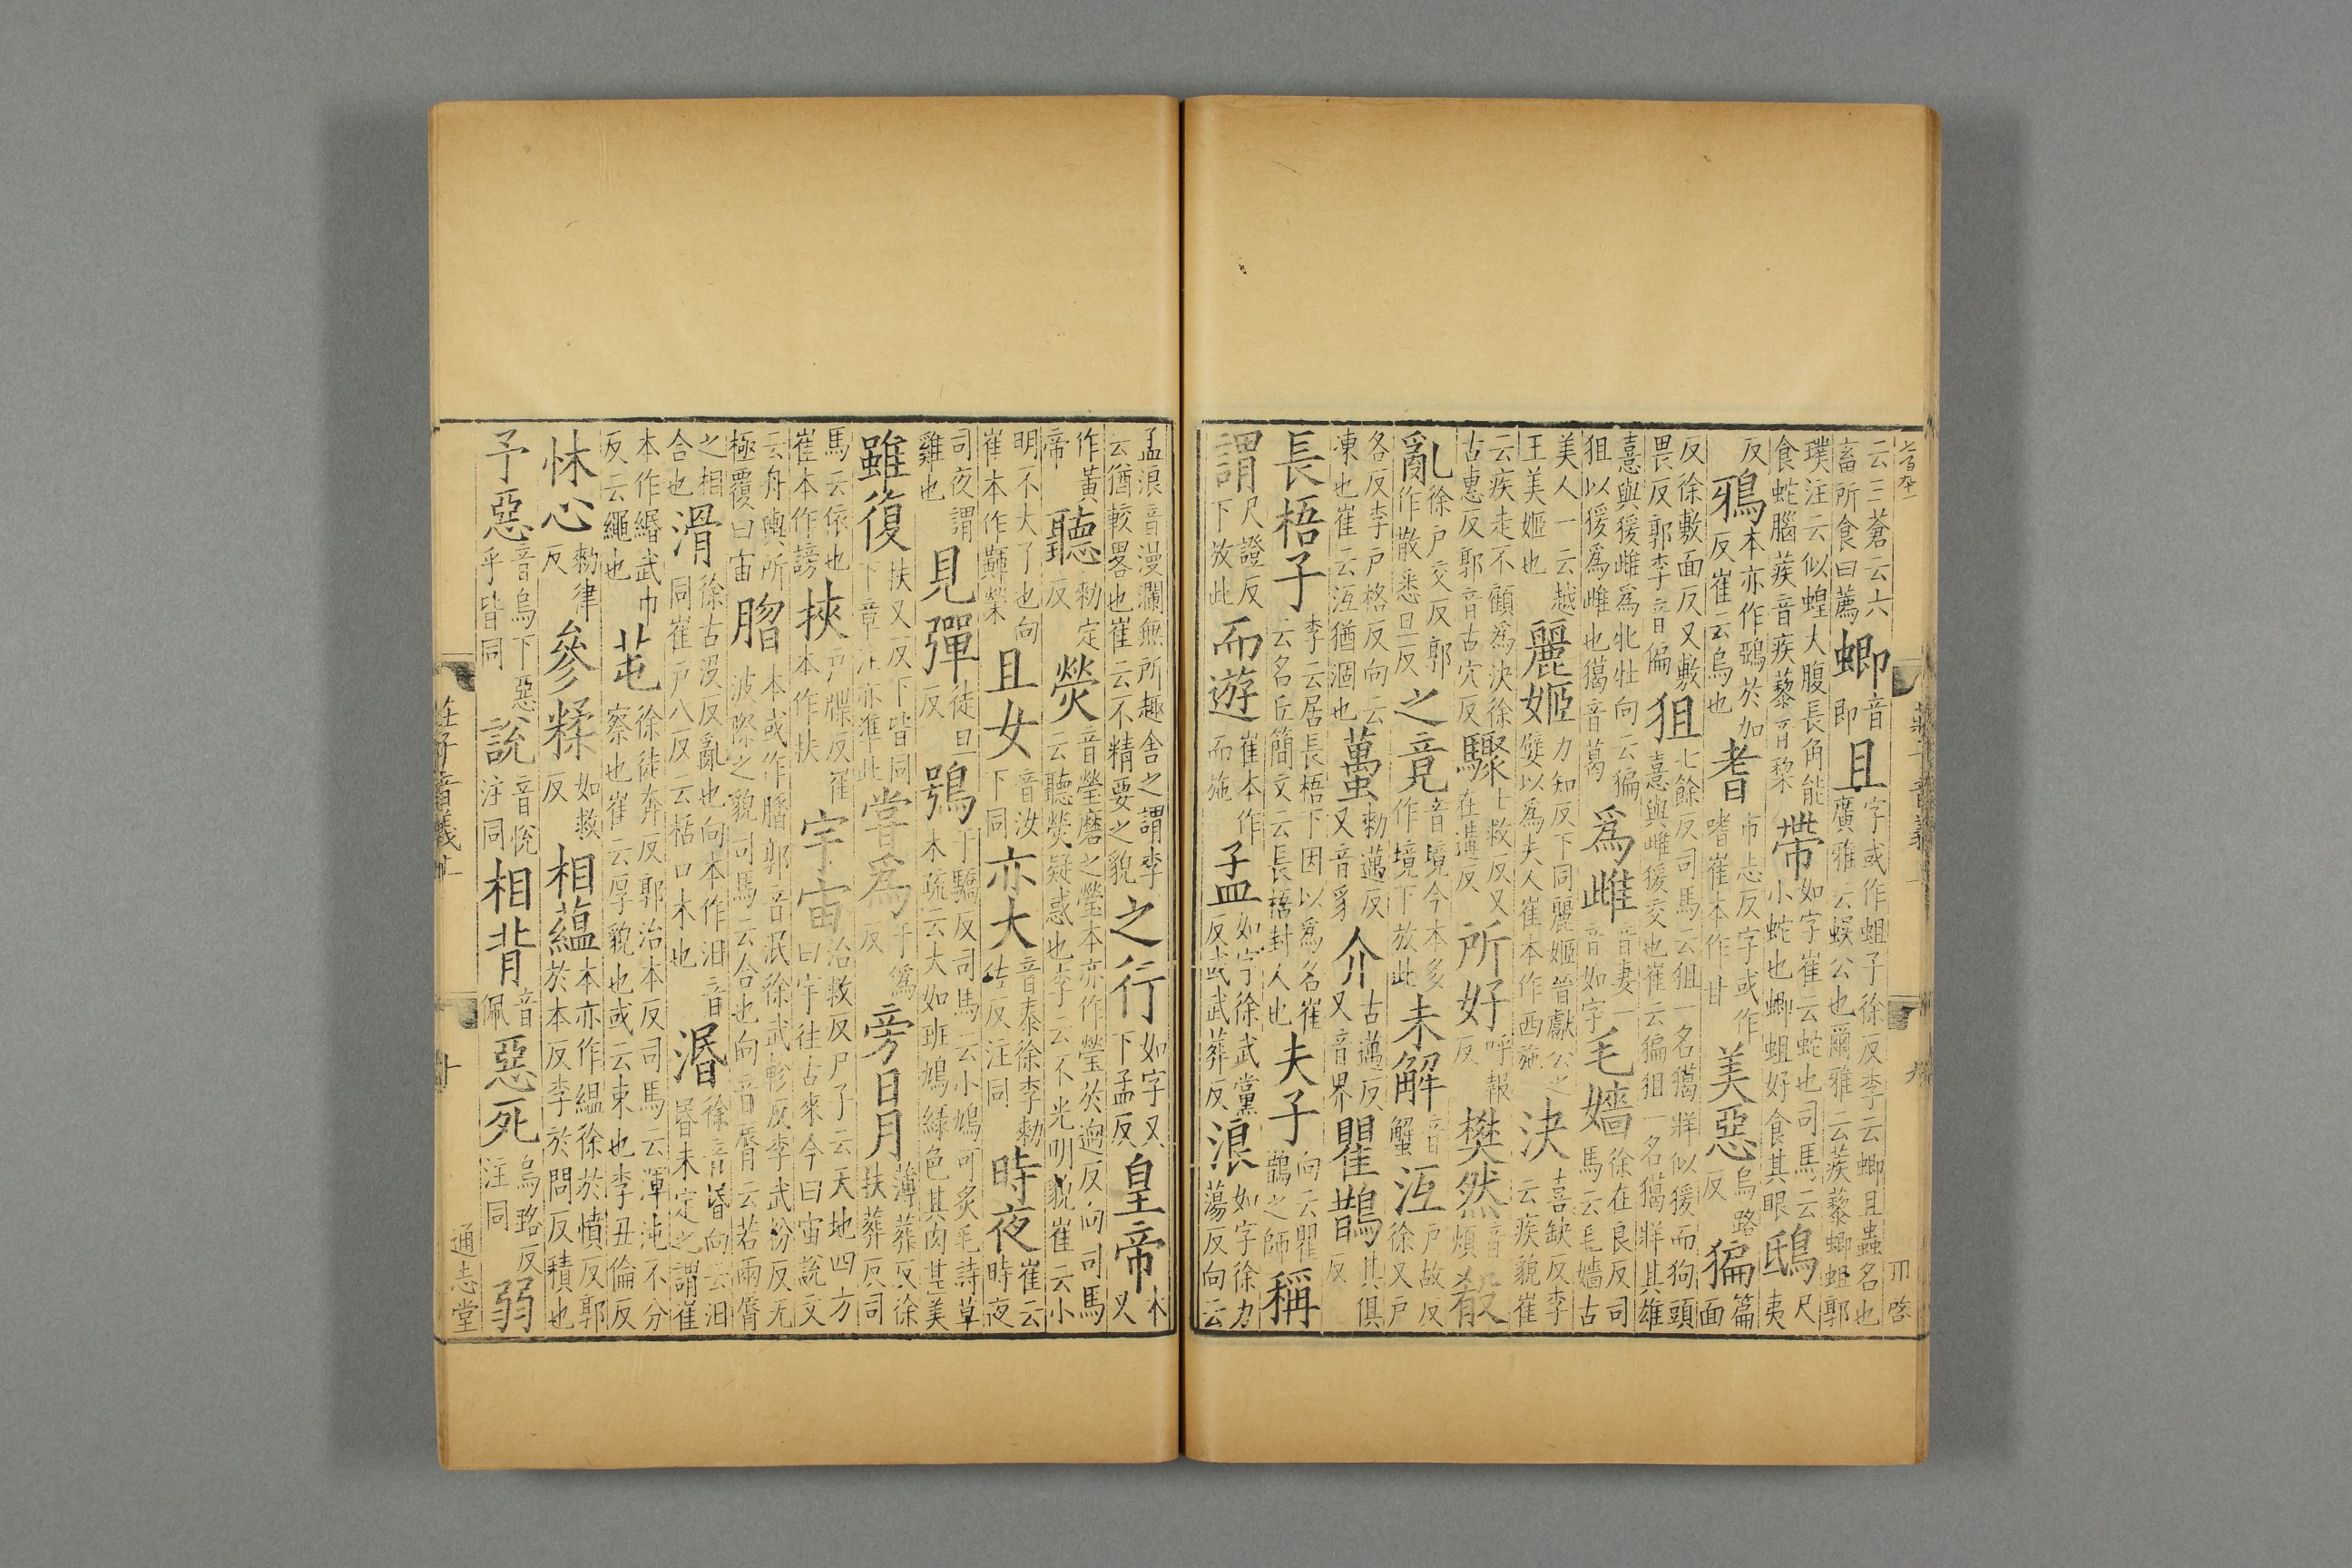 云三蒼云六畜所食曰薦蝍音即且字或作蛆子徐反李云蝍且蟲名也廣雅云蜈公也爾雅云蒺藜蝍蛆郭
璞注云似蝗大腹長角能食蛇腦蒺音疾藜音棃帶如字崔云蛇也司馬云小蛇也蝍蛆好食其眼鴟尺夷
反鴉本亦作鵶於加反崔云烏也耆市志反字或作嗜崔本作甘美惡烏路反猵篇面
反徐敷面反又敷畏反郭李音偏狙七餘反司馬云狙一名獦牂似猨而狗頭憙與雌猨交也崔云猵狙一名獦牂其雄
憙與猨雌爲牝牡向云猵狙以猨爲雌也獦音葛爲雌音妻一音如字毛嬙徐在良反司馬云毛嬙古
美人一云越王美姬也麗姬力知反下同麗姬晉獻公之嬖以爲夫人崔本作西施決喜缺反李云疾貌崔
云疾走不顧爲決徐古惠反郭音古穴反驟士救反又在遘反所好呼報反樊然音煩殽
亂徐戶交反郭作散悉旦反之竟音境今本多作境下放此未解音蟹沍戶故反徐又戶
各反李戶格反向云凍也崔云沍猶涸也蠆勑邁反又音豸介古邁反又音界瞿鵲其俱反
長梧子李云居長梧下因以爲名崔云名丘簡文云長梧封人也夫子向云瞿鵲之師稱
謂尺證反下放此而遊崔本作而施孟如字徐武黨反或武葬反浪如字徐力蕩反向云
莊子音義一 九
孟浪音漫瀾無所趣舍之謂李云猶較畧也崔云不精要之貌之行如字又下孟反皇帝本又
作黃帝聽勑定反熒音瑩磨之瑩本亦作瑩於迥反向司馬云聽熒疑惑也李云不光明貌崔云小
明不大了也向崔本作䎉榮且女音汝下同亦大音泰徐李勑佐反注同時夜崔云時夜
司夜謂雞也見彈徒旦反鴞于驕反司馬云小鳩可炙毛詩草木疏云大如班鳩綠色其肉甚美
雖復扶又反下皆同下章注亦準此嘗爲于僞反旁日月薄葬反徐扶葬反司
馬云依也崔本作謗挾戶牒反崔本作扶宇宙治救反尸子云天地四方曰宇往古來今曰宙說文
云舟輿所極覆曰宙脗本或作䐇郭音泯徐武軫反李武粉反无波際之貌司馬云合也向音脣云若兩脣
之相合也滑徐古沒反亂也向本作汨音同崔戶八反云栝口木也湣徐音昏向云汨昬未定之謂崔
本作緡武巾反云繩也芚徐徒奔反郭治本反司馬云渾沌不分察也崔云厚貌也或云束也李丑倫反
怵心勑律反參糅如救反相蘊本亦作縕徐於憤反郭於本反李於問反積也
予惡音烏下惡乎皆同說音悅注同相背音佩惡死烏路反注同弱
莊子音義上 十 通志堂